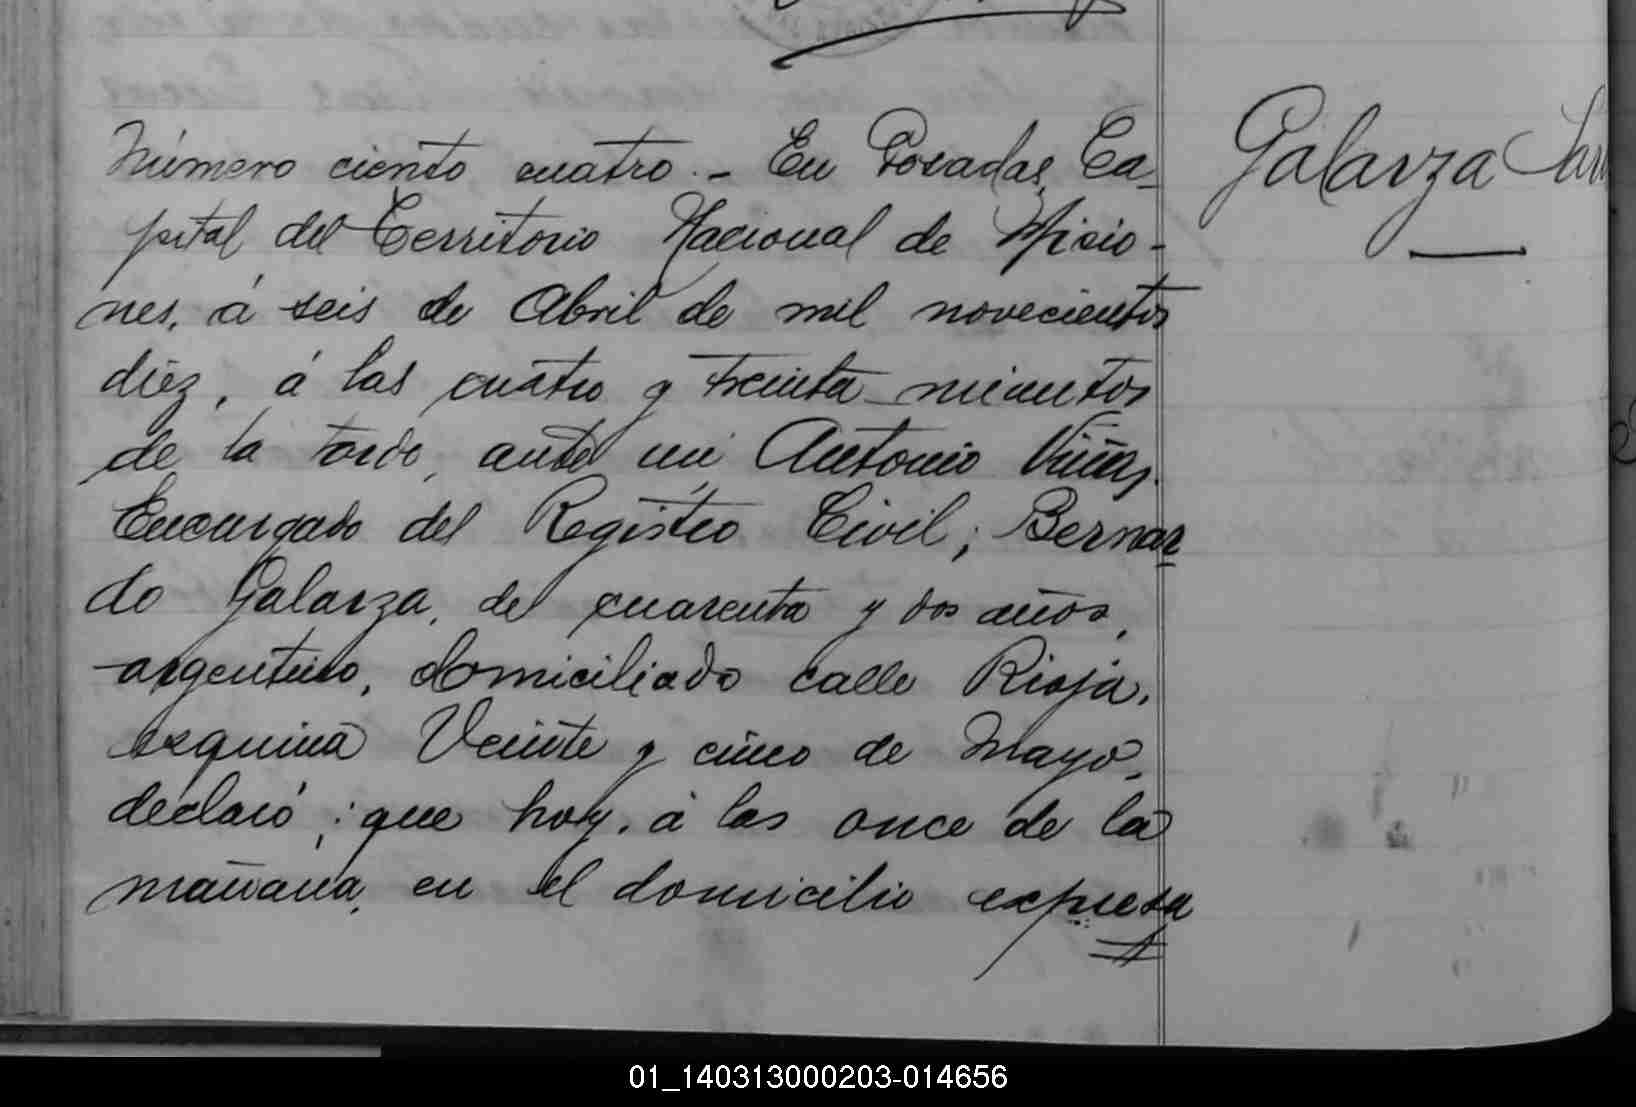 Número ciento cuatro.- En Posadas, Ca-
pital del Territorio Nacional de Misio-
nes, á seis de Abril de mil novecientos
diez, á las cuatro y treinta minutos
de la tarde, ante mi Antonio Viñas,
Encargado del Registro Civil; Bernar
do Galarza, de cuarenta y dos años,
argentino, domiciliado calle Rioja,
esquina Veinte y cinco de Mayo,
declaró; que hoy, á las once de la
mañana, en el domicilio expresa
Galarza
01_140313000203-014656